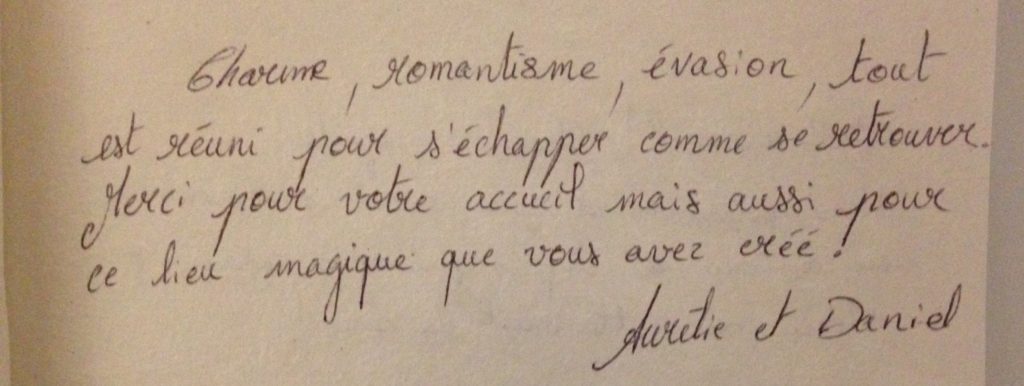 Charme, romantisme, évasion, tout
est réuni pour s'échapper comme se retrouver.
Merci pour votre accueil mais aussi pour
ce lieu magique que vous avez créé !
Aurélie et Daniel